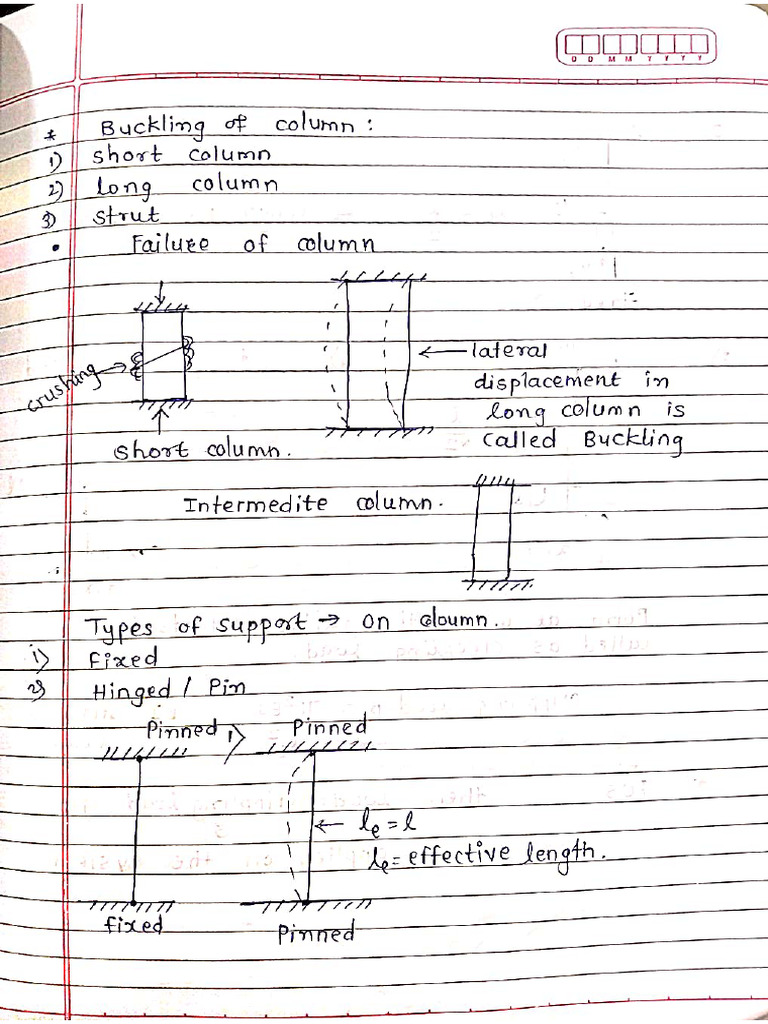 D D M M Y Y Y Y
* Buckling of column :
1) short column
2) long column
3) strut
• Failure of column
crushing
short column.
lateral
displacement in
long column is
called Buckling
Intermedite column.
Types of support → on cloumn.
i) fixed
2) Hinged / Pin
Pinned
fixed
1) Pinned
le = l
le = effective length.
Pinned